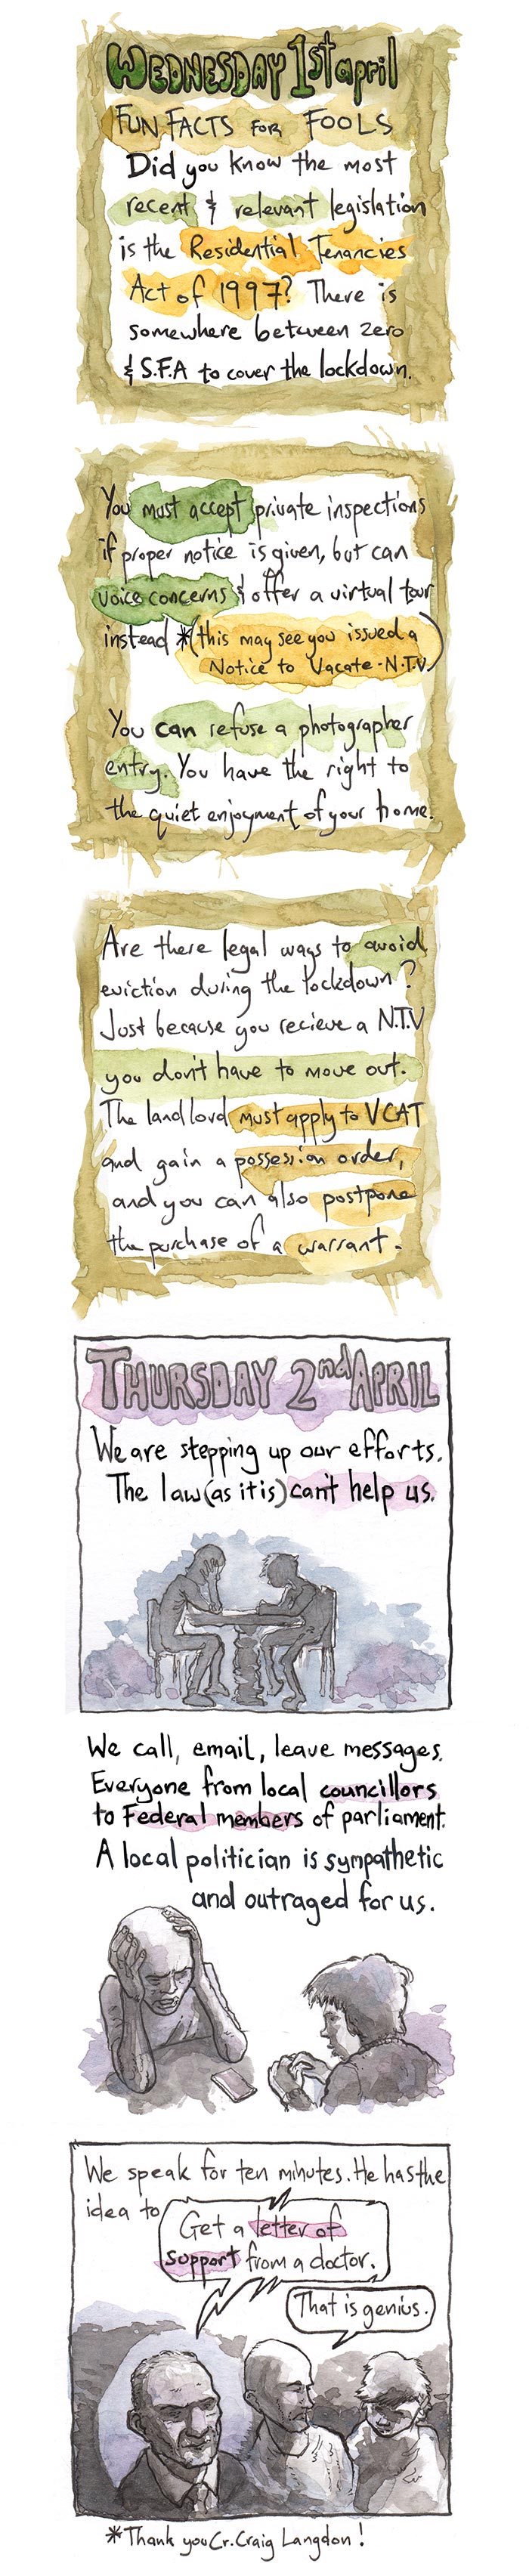 WEDNESDAY 1st april
FUN FACTS FOR FOOLS
Did you know the most
recent & relevant legislation
is the Residential Tenancies
Act of 1997? There is
somewhere between zero
& S.F.A to cover the lockdown.
You must accept private inspections
if proper notice is given, but can
voice concerns & offer a virtual tour
instead *(this may see you issued a
Notice to Vacate - N.T.V.)
You can refuse a photographer
entry. You have the right to
the quiet enjoyment of your home.
Are there legal ways to avoid
eviction during the lockdown?
Just because you recieve a N.T.V
you don't have to move out.
The landlord must apply to VCAT
and gain a possession order,
and you can also postpone
the purchase of a warrant.
THURSDAY 2nd APRIL
We are stepping up our efforts.
The law (as it is) can't help us.
We call, email, leave messages.
Everyone from local councillors
to Federal members of parliament.
A local politician is sympathetic
and outraged for us.
We speak for ten minutes. He has the
idea to
Get a letter of
support from a doctor.
That is genius.
*Thank you Cr. Craig Langdon!